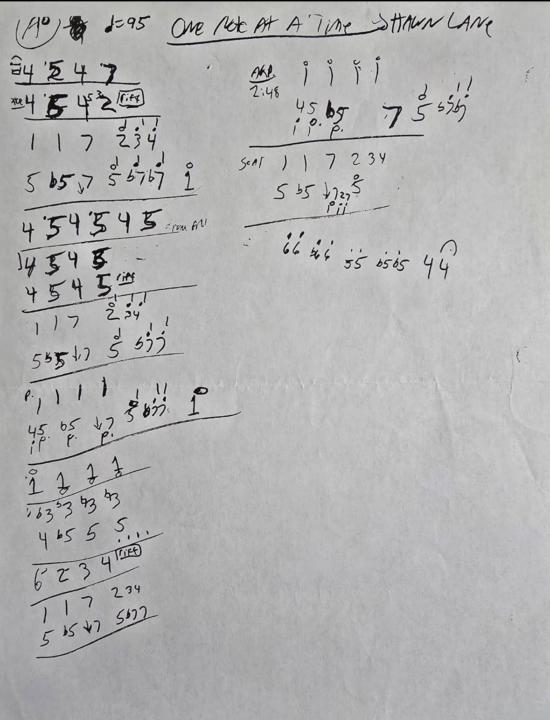 A° d=95 ONE NOTE AT A TIME SHAWN LANE
4 5 4 7
4 5 4 2 riff
1 1 7 2 3 4
5 b5 ↓7 5 b7 b7 1
4 5 4 5 4 5
4 5 4 5
4 5 4 5 riff
1 1 7 2 3 4
5 b5 ↓7 5 b7 7
p. 1 1 1 1
45 b5 ↓7 5 b77 1
ip. p. p.
1 1 1 1
b3 b3 b3 b3
4 b5 5 5 ....
6 2 3 4 riff
1 1 7 2 3 4
5 b5 ↓7 5 b7 7
1 1 1 1
2:48
45 b5 7 5 b7 b7
i p. p.
1 1 7 2 3 4
5 b5 ↓7 27 5
p i i
66 b6 6 55 b5b5 44